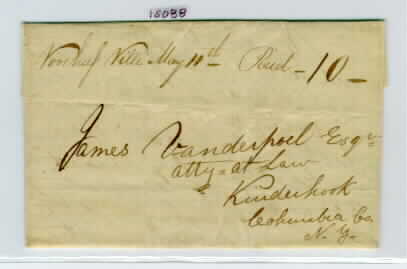 15088
Ville May 11th Paid -10-
James Vanderpoel Esqr
atty - at Law
Kinderhook
Columbia Co
N. Y.